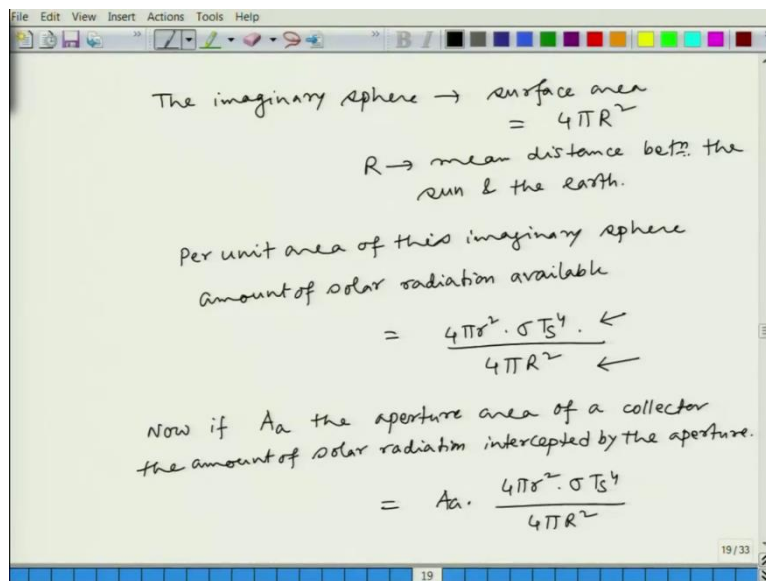 File Edit View Insert Actions Tools Help
B I
The imaginary sphere → surface area
= 4πR²
R → mean distance betn. the
sun & the earth.
Per unit area of this imaginary sphere
amount of solar radiation available
= 4πr² · σTs⁴ . ←
4πR² ←
Now if Aa the aperture area of a collector
the amount of solar radiation intercepted by the aperture.
= Aa · 4πr² · σTs⁴
4πR²
19/33
19